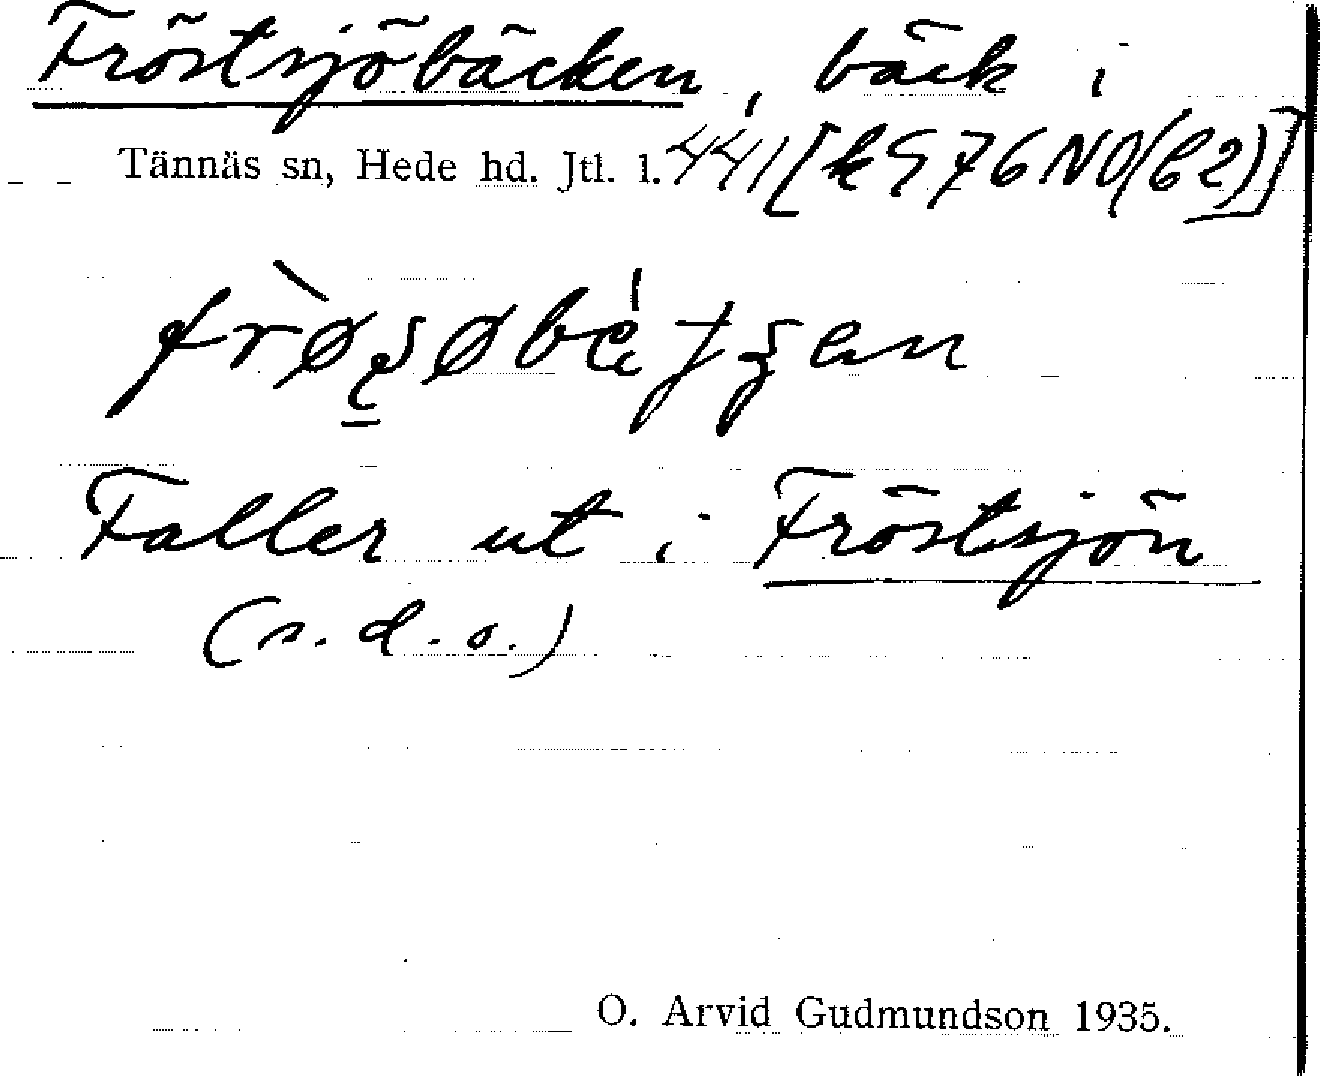 Fröstsjöbäcken, bäck i
Tännäs sn, Hede hd. Jtl. l. 441 [k976NO(62)]
Faller ut i Fröstsjön
(s.d.o.)
O. Arvid Gudmundson 1935.